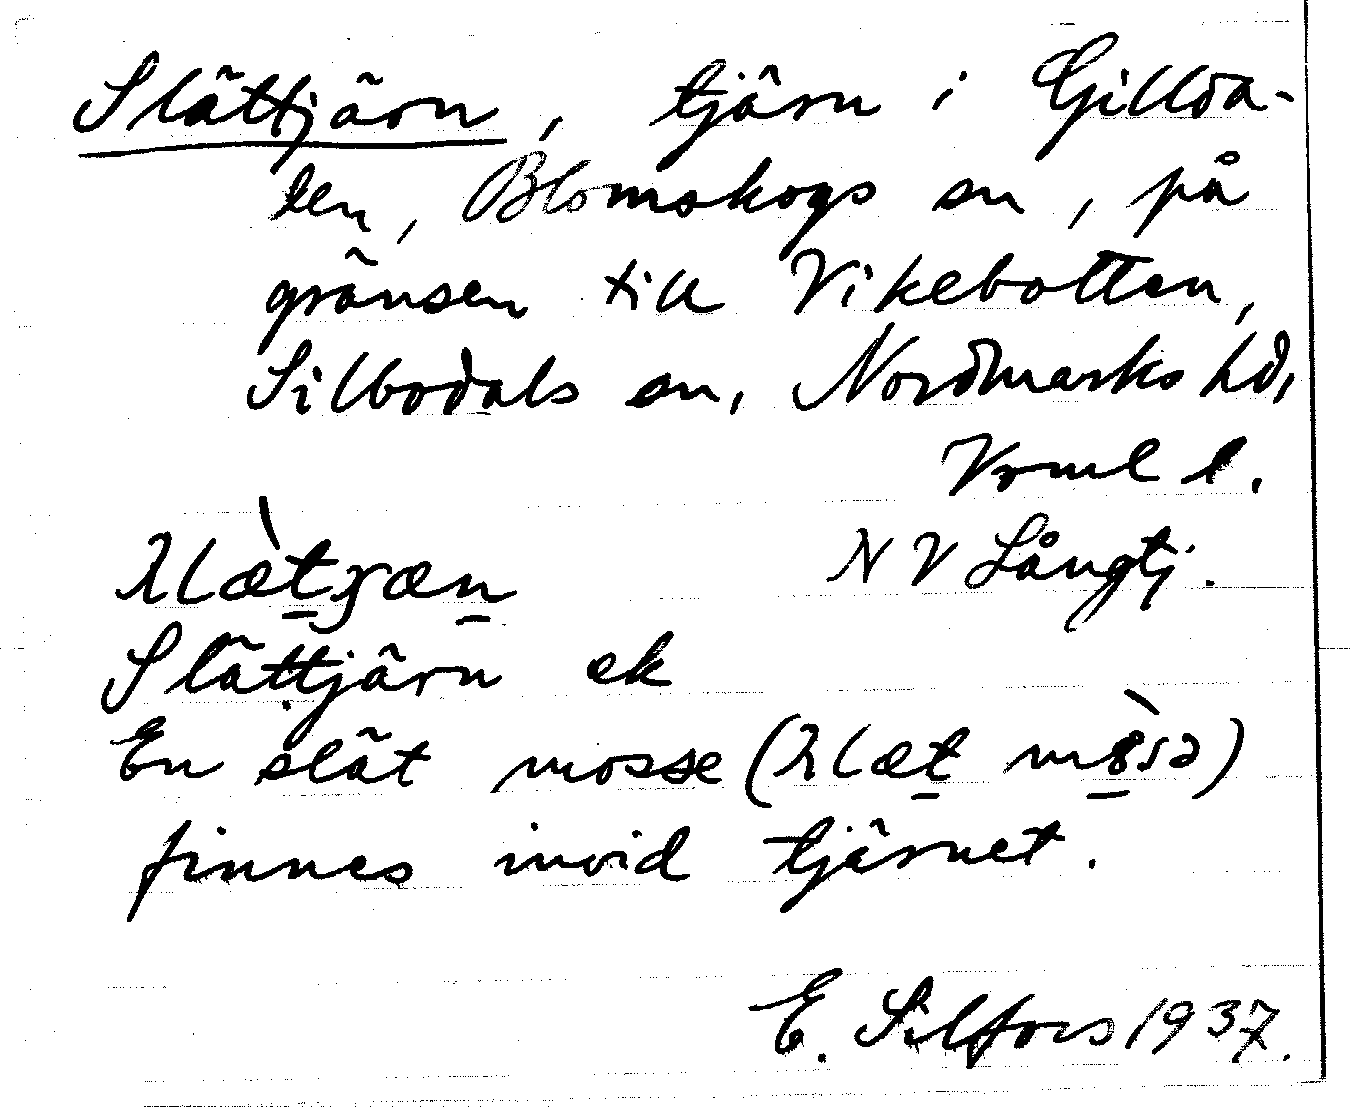 Slättjärn, tjärn i Gillda-
len, Blomskogs sn, på
gränsen till Vikebotten,
Silbodals sn, Nordmarks hd,
Vrml l.
N V Långtj.
Slättjärn ek
En slät mosse (
finnes invid tjärnet.
E. Silfors 1937.